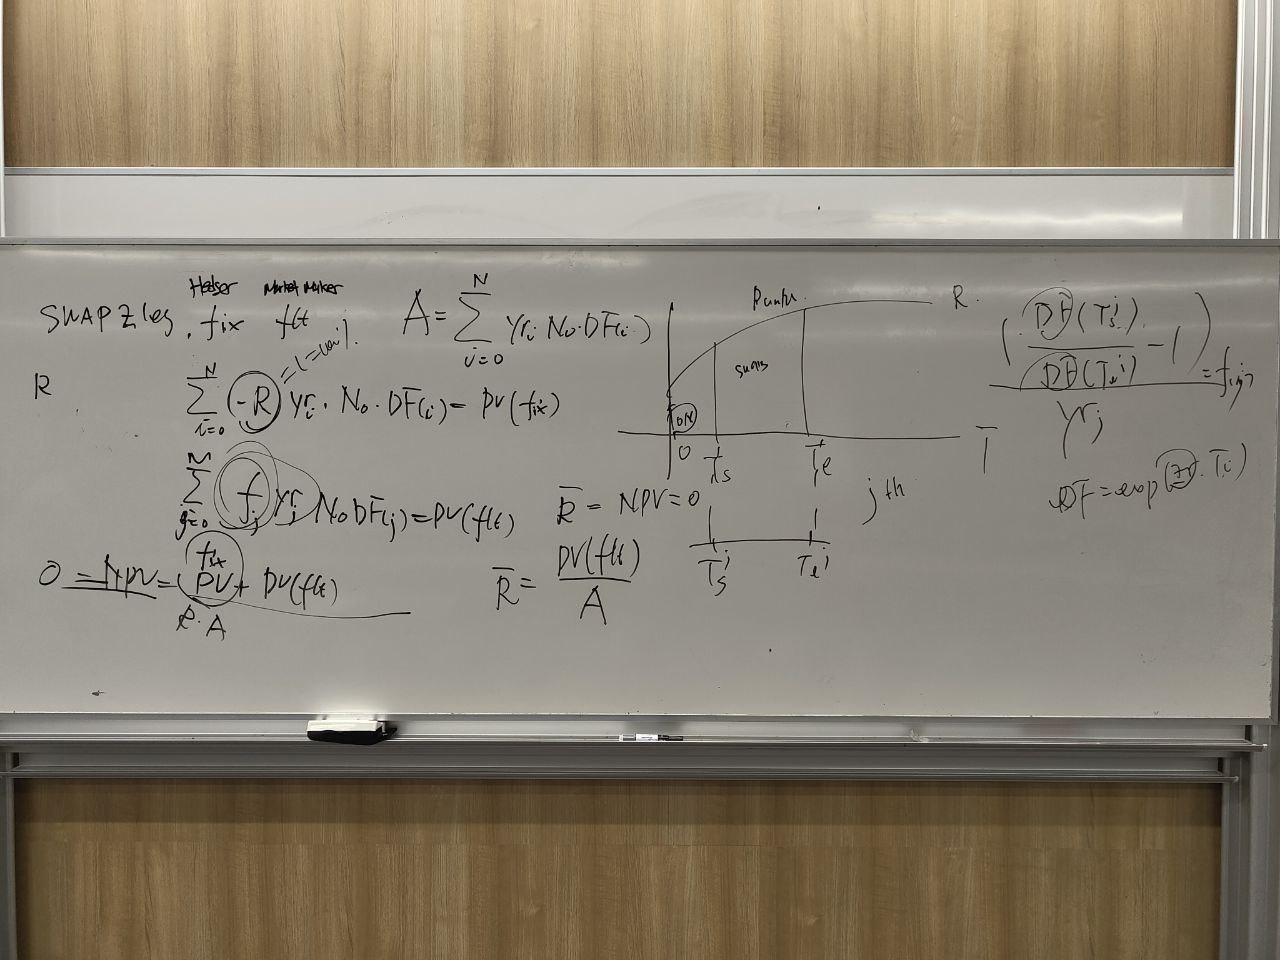 Hedger Market Maker
SWAP 2 legs, fix flt
A = \sum_{i=0}^{N} Yr_i N_0 \cdot DF(i)
R
\sum_{i=0}^{N} (-R) Yr_i \cdot N_0 \cdot DF(i) = PV(fix)
\sum_{j=0}^{M} f_j Yr_j N_0 DF(j) = PV(flt)
0 = NPV = PV fix + PV(flt)
R \cdot A
\bar{R} = NPV = 0
\bar{R} = \frac{PV(flt)}{A}
R
ON
0 T_s T_e T
j th
T_s^j T_e^j
\frac{\left( \frac{DF(T_s^j)}{DF(T_e^j)} - 1 \right)}{Yr_j} = f(j)
DF = exp(zr \cdot T_i)